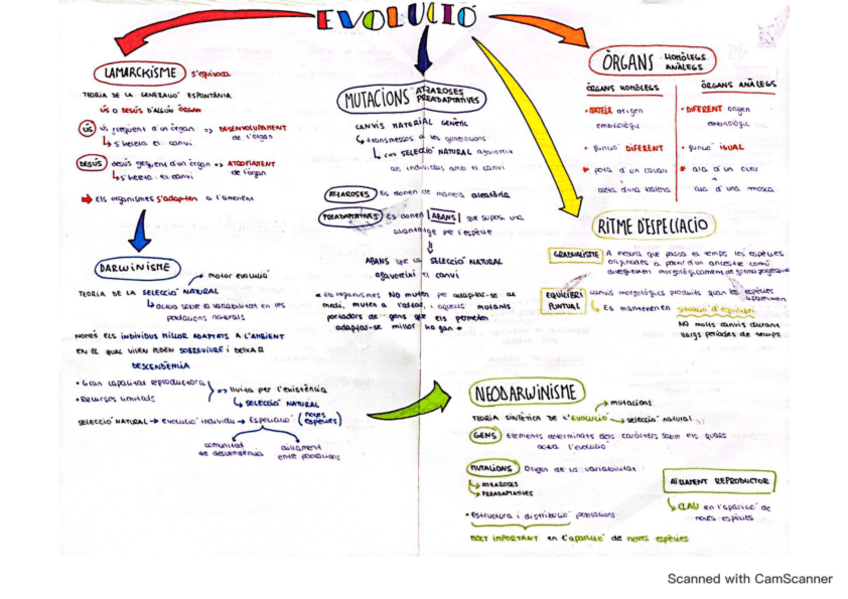 EVOLUCIÓ
LAMARCKISME s'equivoca
TEORIA DE LA GENERACIÓ ESPONTÀNIA
ÚS O DESÚS D'ALGUN ÒRGAN
ÚS ús freqüent d'un òrgan => DESENVOLUPAMENT de l'òrgan
↳ s'hereta el canvi
DESÚS desús freqüent d'un òrgan => ATROFIAMENT de l'òrgan
↳ s'hereta el canvi
➡ Els organismes s'adapten a l'ambient
DARWINISME
motor evolució
TEORIA DE LA SELECCIÓ NATURAL
↳ actua sobre la variabilitat en les
poblacions naturals
NOMÉS ELS INDIVIDUS MILLOR ADAPTATS A L'AMBIENT
EN EL QUAL VIUEN PODEN SOBREVIURE i DEIXAR
DESCENDÈNCIA
• Gran capacitat reproductora
• Recursos limitats
=> lluita per l'existència
↳ SELECCIÓ NATURAL
SELECCIÓ NATURAL → Evolució individu → Especiació (noves espècies)
comunitat de descendència
aïllament entre poblacions
MUTACIONS ATZAROSES PREADAPTATIVES
CANVIS MATERIAL GENÈTIC
↳ transmesos a les generacions
↳ SELECCIÓ NATURAL afavoreix
als individus amb el canvi
ATZAROSES Es donen de manera aleatòria
PREADAPTATIVES Es donen ABANS que suposi una
avantatge per l'espècie
ABANS que la SELECCIÓ NATURAL
afavoreixi el canvi
* Els organismes NO muten per adaptar-se al
medi, muten a l'atzar, i aquells mutants
portadors de gens que els permeten
adaptar-se millor ho fan *
ÒRGANS HOMÒLEGS ANÀLEGS
ÒRGANS HOMÒLEGS
• MATEIX origen
embriològic
• funció DIFERENT
pota d'un cavall
aleta d'una balena
ÒRGANS ANÀLEGS
• DIFERENT origen
embriològic
• funció IGUAL
ala d'un ocell
ala d'una mosca
RITME D'ESPECIACIÓ
GRADUALISTE A mesura que passa el temps les espècies
originades a partir d'un ancestre comú
divergeixen morfològicament de forma progressiva
EQUILIBRI PUNTUAL canvis morfològics produïts quan les espècies
apareixen
↳ Es mantenen en situació d'equilibri
NO molts canvis durant
llargs períodes de temps
NEODARWINISME
mutacions
TEORIA SINTÈTICA DE L'EVOLUCIÓ → selecció natural
GENS Elements determinats dels caràcters sobre els quals
actua l'evolució
MUTACIONS Origen de la variabilitat
↳ ATZAROSES
↳ PREADAPTATIVES
• Estructura i distribució poblacions
MOLT IMPORTANT en l'aparició de noves espècies
AÏLLAMENT REPRODUCTOR
↳ CLAU en l'aparició de
noves espècies
Scanned with CamScanner